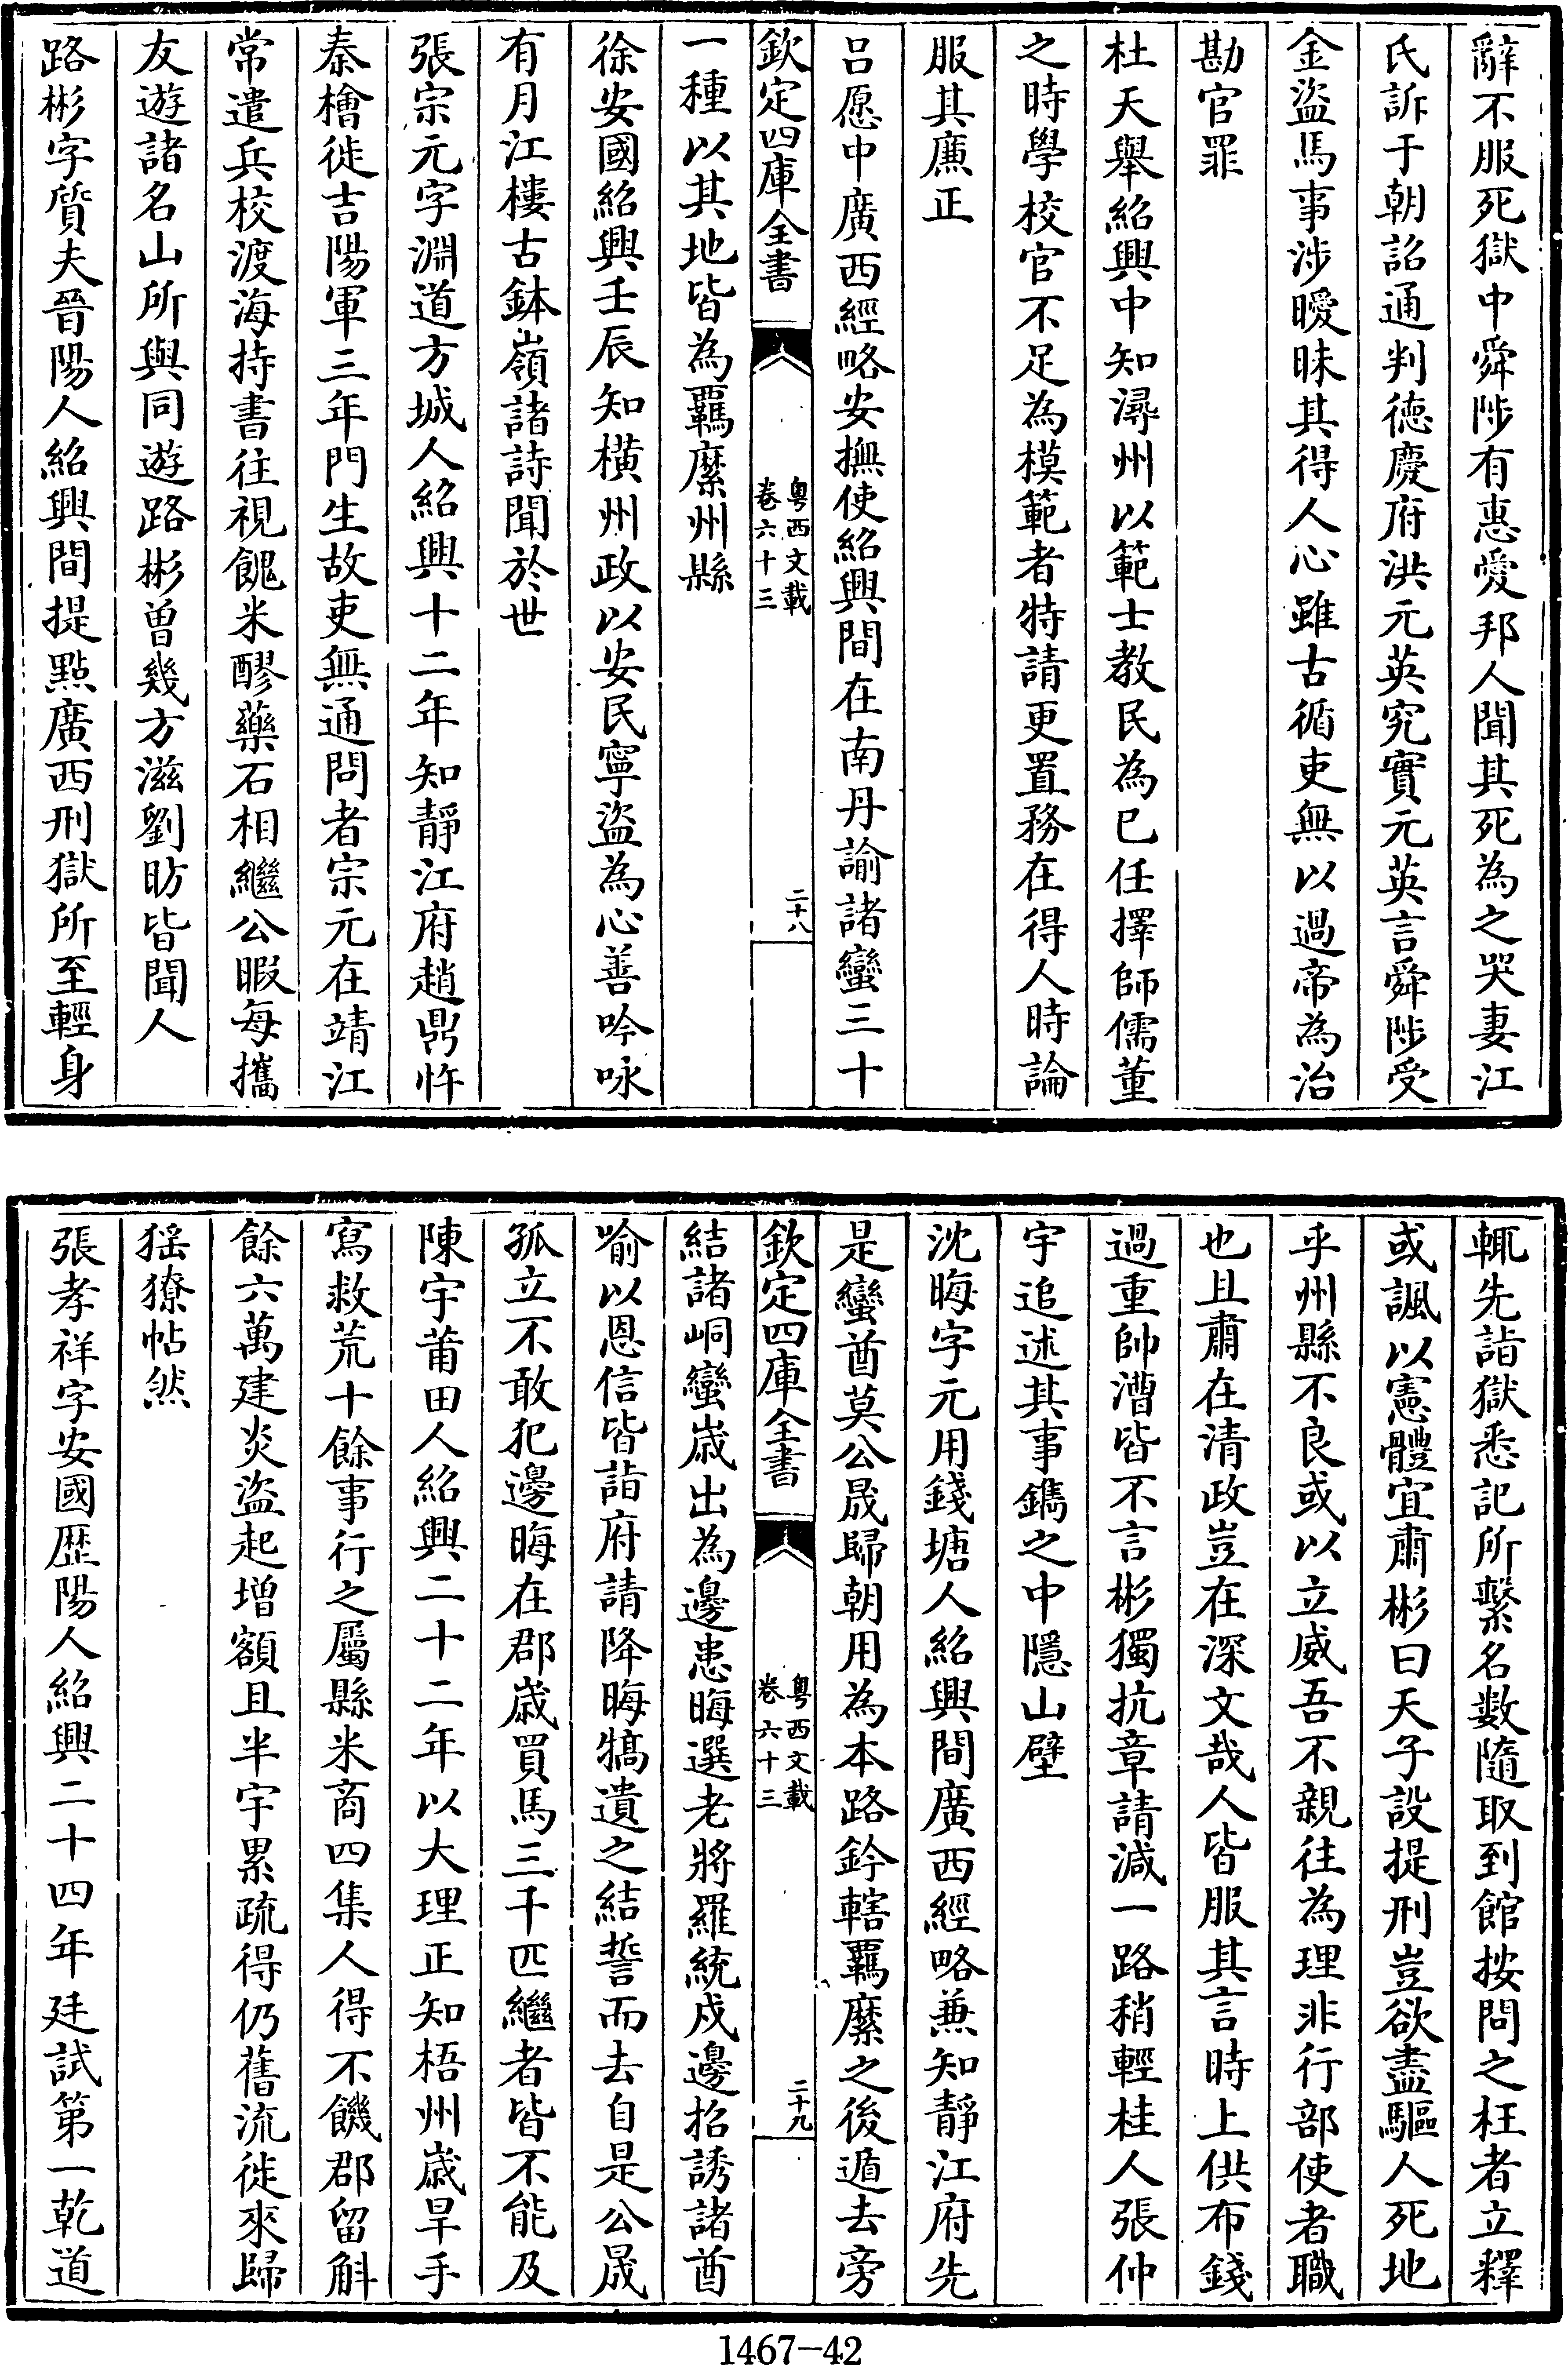 辭不服死獄中舜陟有惠愛邦人聞其死為之哭妻江
氏訴于朝詔通判徳慶府洪元英究實元英言舜陟受
金盜馬事涉曖昧其得人心雖古循吏無以過帝為治
勘官罪
杜天舉紹興中知潯州以範士教民為已任擇師儒董
之時學校官不足為模範者特請更置務在得人時論
服其廉正
呂愿中廣西經略安撫使紹興間在南丹諭諸蠻三十
欽定四庫全書
粤西文載
卷六十三
二十八
一種以其地皆為羈縻州縣
徐安國紹興壬辰知橫州政以安民寧盜為心善吟咏
有月江樓古鉢嶺諸詩聞於世
張宗元字淵道方城人紹興十二年知靜江府趙鼎忤
秦檜徙吉陽軍三年門生故吏無通問者宗元在靖江
常遣兵校渡海持書往視餽米醪藥石相繼公暇每攜
友遊諸名山所與同遊路彬曽幾方滋劉昉皆聞人
路彬字質夫晉陽人紹興間提點廣西刑獄所至輕身
輒先詣獄悉記所繫名數隨取到館按問之枉者立釋
或諷以憲體宜肅彬曰天子設提刑豈欲盡驅人死地
乎州縣不良或以立威吾不親往為理非行部使者職
也且肅在清政豈在深文哉人皆服其言時上供布錢
過重帥漕皆不言彬獨抗章請減一路稍輕桂人張仲
宇追述其事鐫之中隱山壁
沈晦字元用錢塘人紹興間廣西經略兼知靜江府先
是蠻酋莫公晟歸朝用為本路鈐轄羈縻之後遁去旁
欽定四庫全書
粤西文載
卷六十三
二十九
結諸峒蠻歲出為邊患晦選老將羅統戍邊招誘諸酋
喻以恩信皆詣府請降晦犒遺之結誓而去自是公晟
孤立不敢犯邊晦在郡歲買馬三千匹繼者皆不能及
陳宇莆田人紹興二十二年以大理正知梧州歲旱手
寫救荒十餘事行之屬縣米商四集人得不饑郡留斛
餘六萬建炎盜起增額且半宇累疏得仍舊流徙來歸
猺獠帖然
張孝祥字安國歴陽人紹興二十四年廷試第一乾道
1467-42